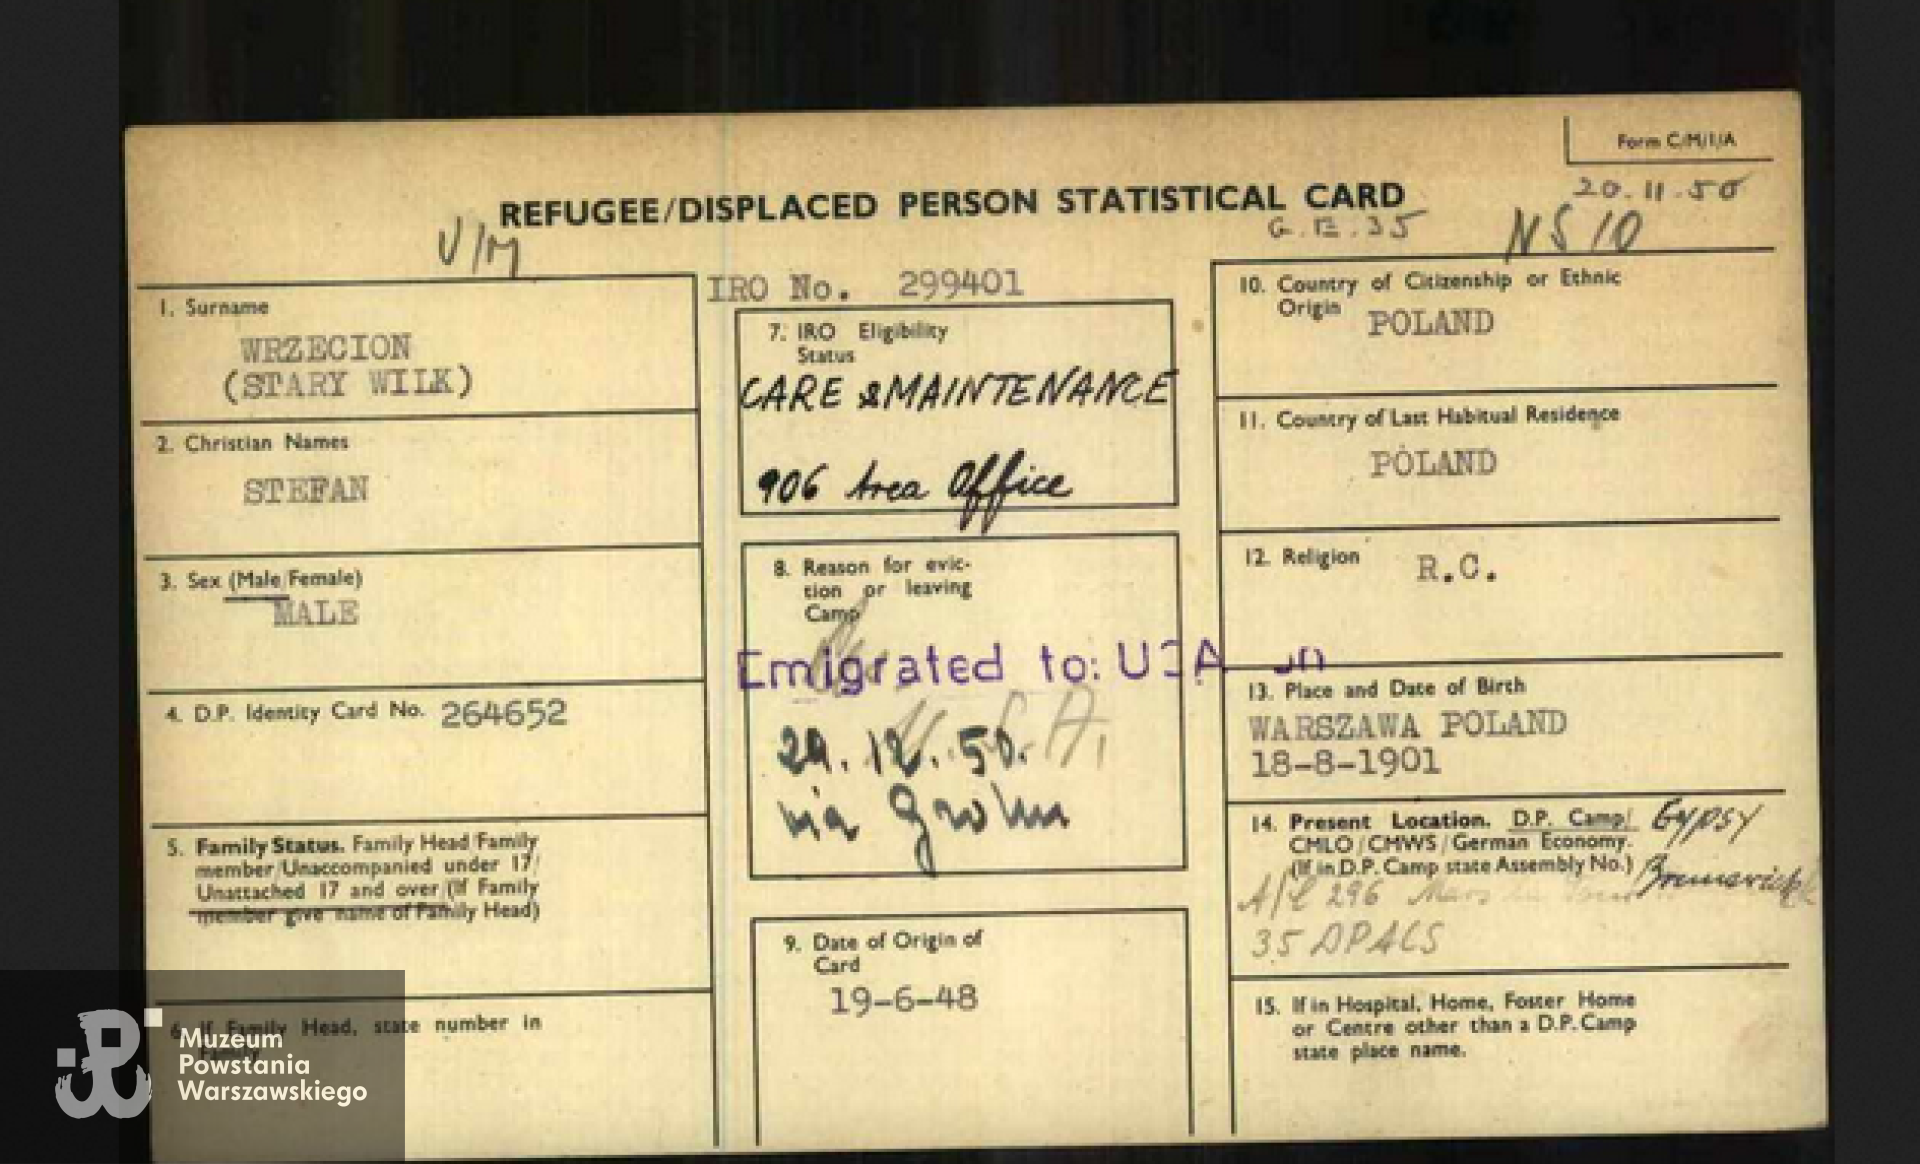 Form C/M/1/A
20.11.50
REFUGEE/DISPLACED PERSON STATISTICAL CARD
G.E.35
NS 10
V/M
IRO No. 299401
1. Surname
WRZECION
(STARY WILK)
2. Christian Names
STEFAN
3. Sex (Male/Female)
MALE
4. D.P. Identity Card No. 264652
5. Family Status. Family Head/Family
member/Unaccompanied under 17/
Unattached 17 and over (If Family
member give name of Family Head)
6. If Family Head, state number in
Family
7. IRO Eligibility
Status
CARE & MAINTENANCE
906 Area Office
8. Reason for evic-
tion or leaving
Camp
Emigrated to: USA on
U.S.A.
29.12.50.
via Grohn
9. Date of Origin of
Card
19-6-48
10. Country of Citizenship or Ethnic
Origin
POLAND
11. Country of Last Habitual Residence
POLAND
12. Religion R.C.
13. Place and Date of Birth
WARSZAWA POLAND
18-8-1901
14. Present Location. D.P. Camp/ Gypsy
CMLO/CMWS/German Economy.
(If in D.P. Camp state Assembly No.)
A/C 296
35 DPACS
15. If in Hospital, Home, Foster Home
or Centre other than a D.P. Camp
state place name.
Muzeum
Powstania
Warszawskiego